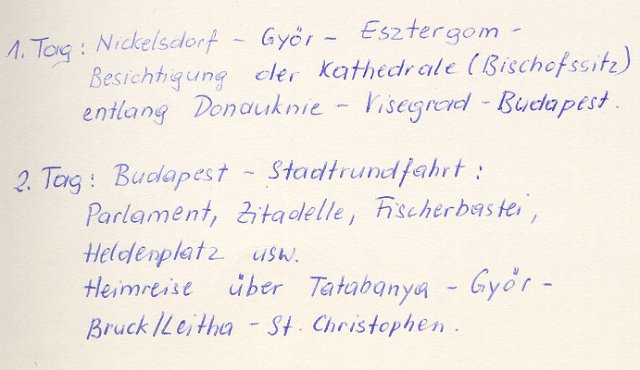 1. Tag: Nickelsdorf - Györ - Esztergom -
Besichtigung der Kathedrale (Bischofssitz)
entlang Donauknie - Visegrad - Budapest.
2. Tag: Budapest - Stadtrundfahrt:
Parlament, Zitadelle, Fischerbastei,
Heldenplatz usw.
Heimreise über Tatabanya - Györ -
Bruck/Leitha - St. Christophen.